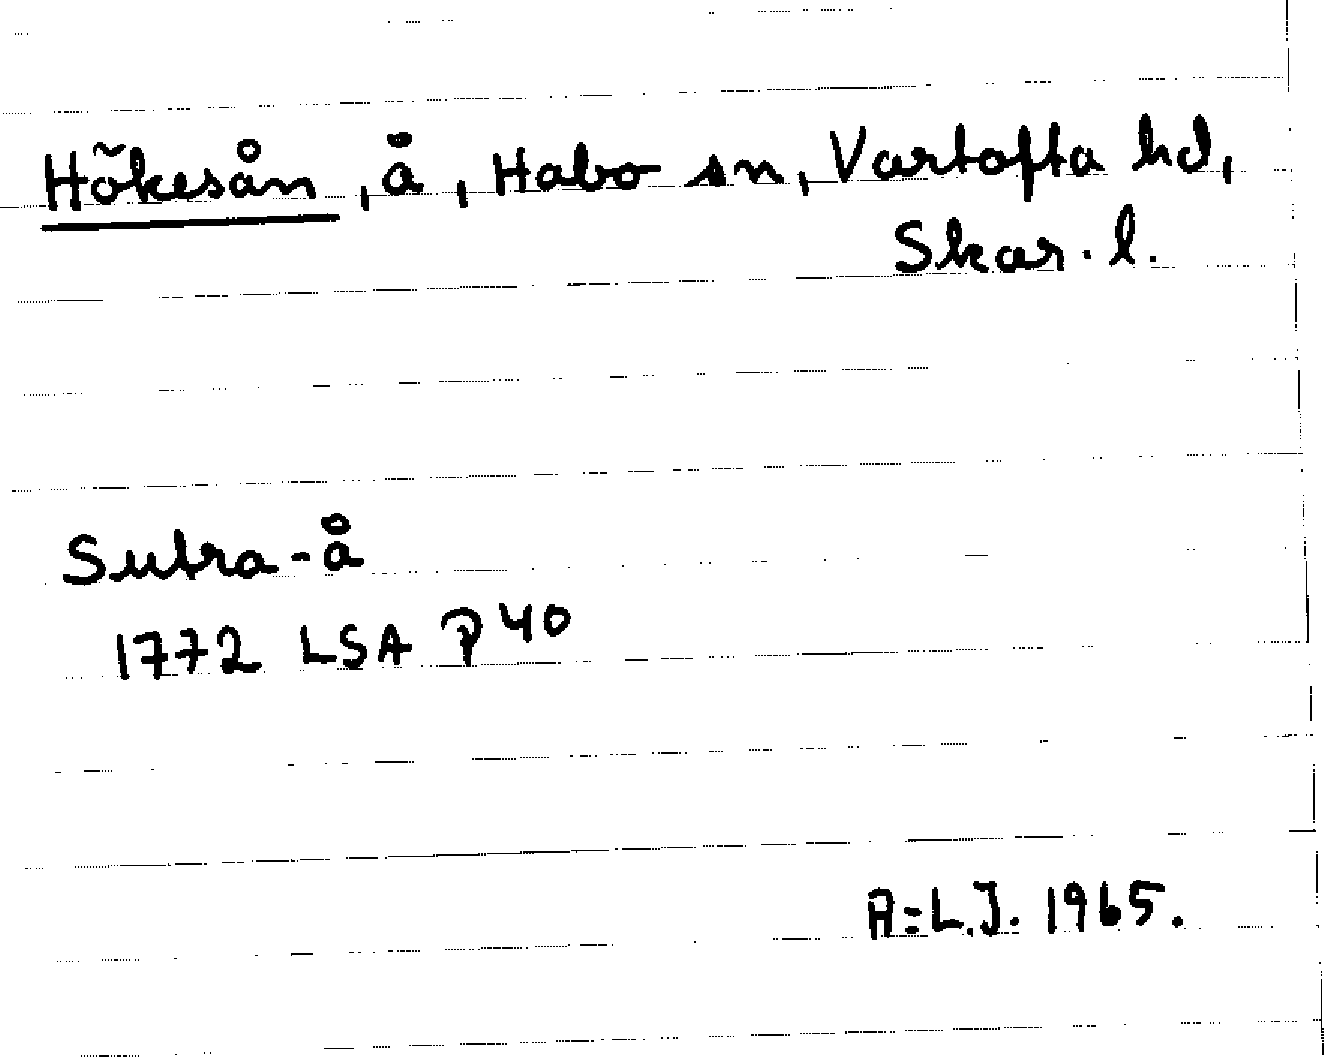 Hökesån, å, Habo sn, Vartofta hd,
Skar. l.
Sutra-å
1772 LSA P 40
A=L.J. 1965.